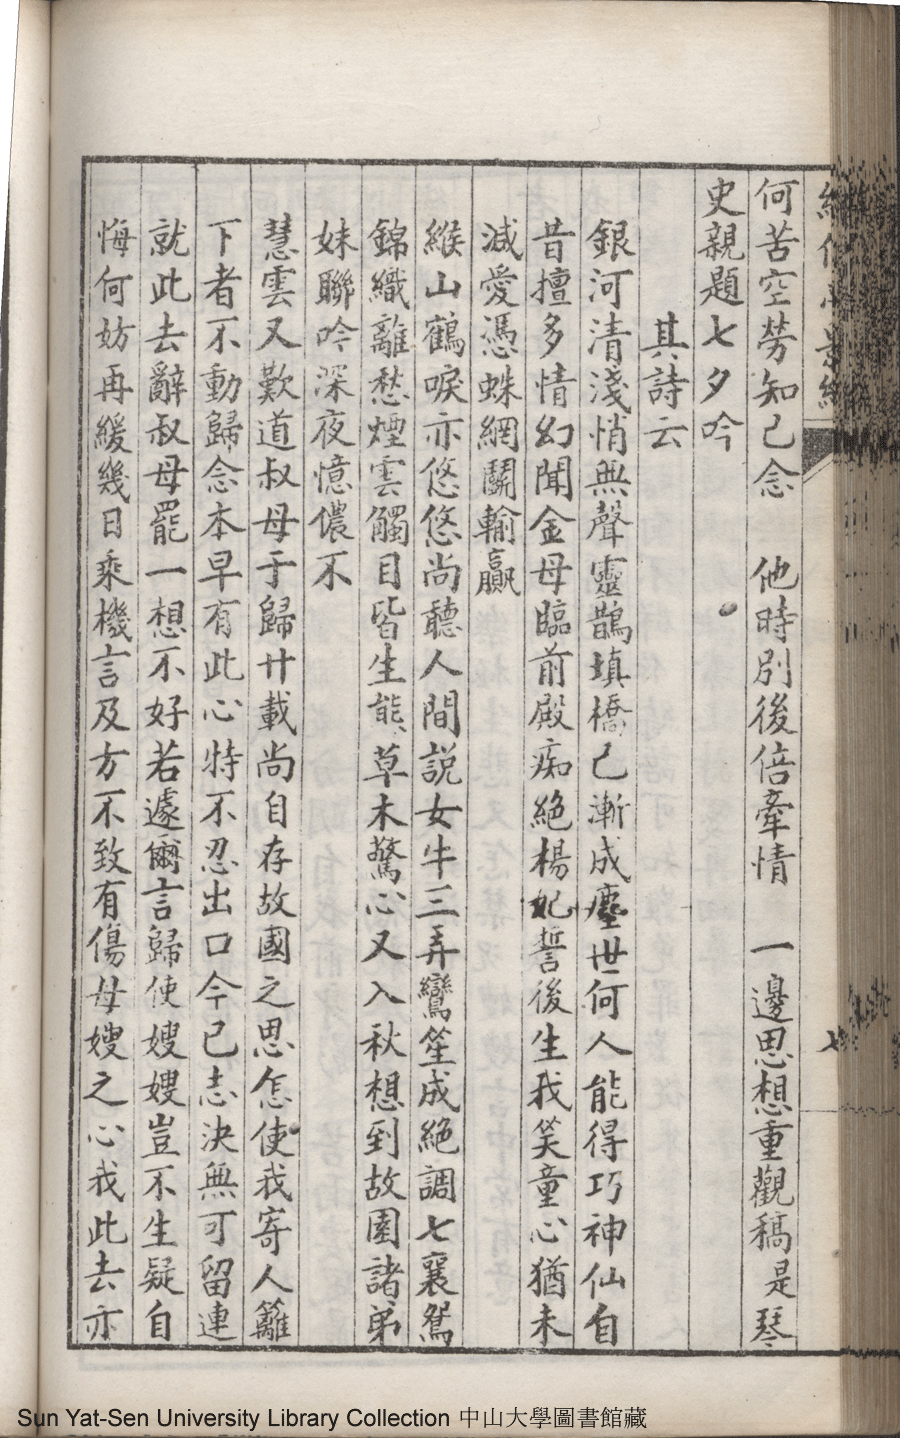 何苦空勞知己念　他時別後倍牽情　一邊思想重觀稿是琴
史親題七夕吟
其詩云
銀河清淺悄無聲靈鵲填橋已漸成塵世何人能得巧神仙自
昔擅多情幻聞金母臨前殿痴絕楊妃誓後生我笑童心猶未
減愛憑蛛網鬭輸贏
緱山鶴唳亦悠悠尚聽人間說女牛三弄鸞笙成絕調七襄鴛
錦織離愁煙雲觸目皆生態草木驚心又入秋想到故園諸弟
妹聯吟深夜憶儂不
慧雲又歎道叔母于歸廿載尚自存故國之思怎使我寄人籬
下者不動歸念本早有此心特不忍出口今已志決無可留連
就此去辭叔母罷一想不好若遽爾言歸使嫂嫂豈不生疑自
悔何妨再緩幾日乘機言及方不致有傷母嫂之心我此去亦
七
Sun Yat-Sen University Library Collection 中山大學圖書館藏